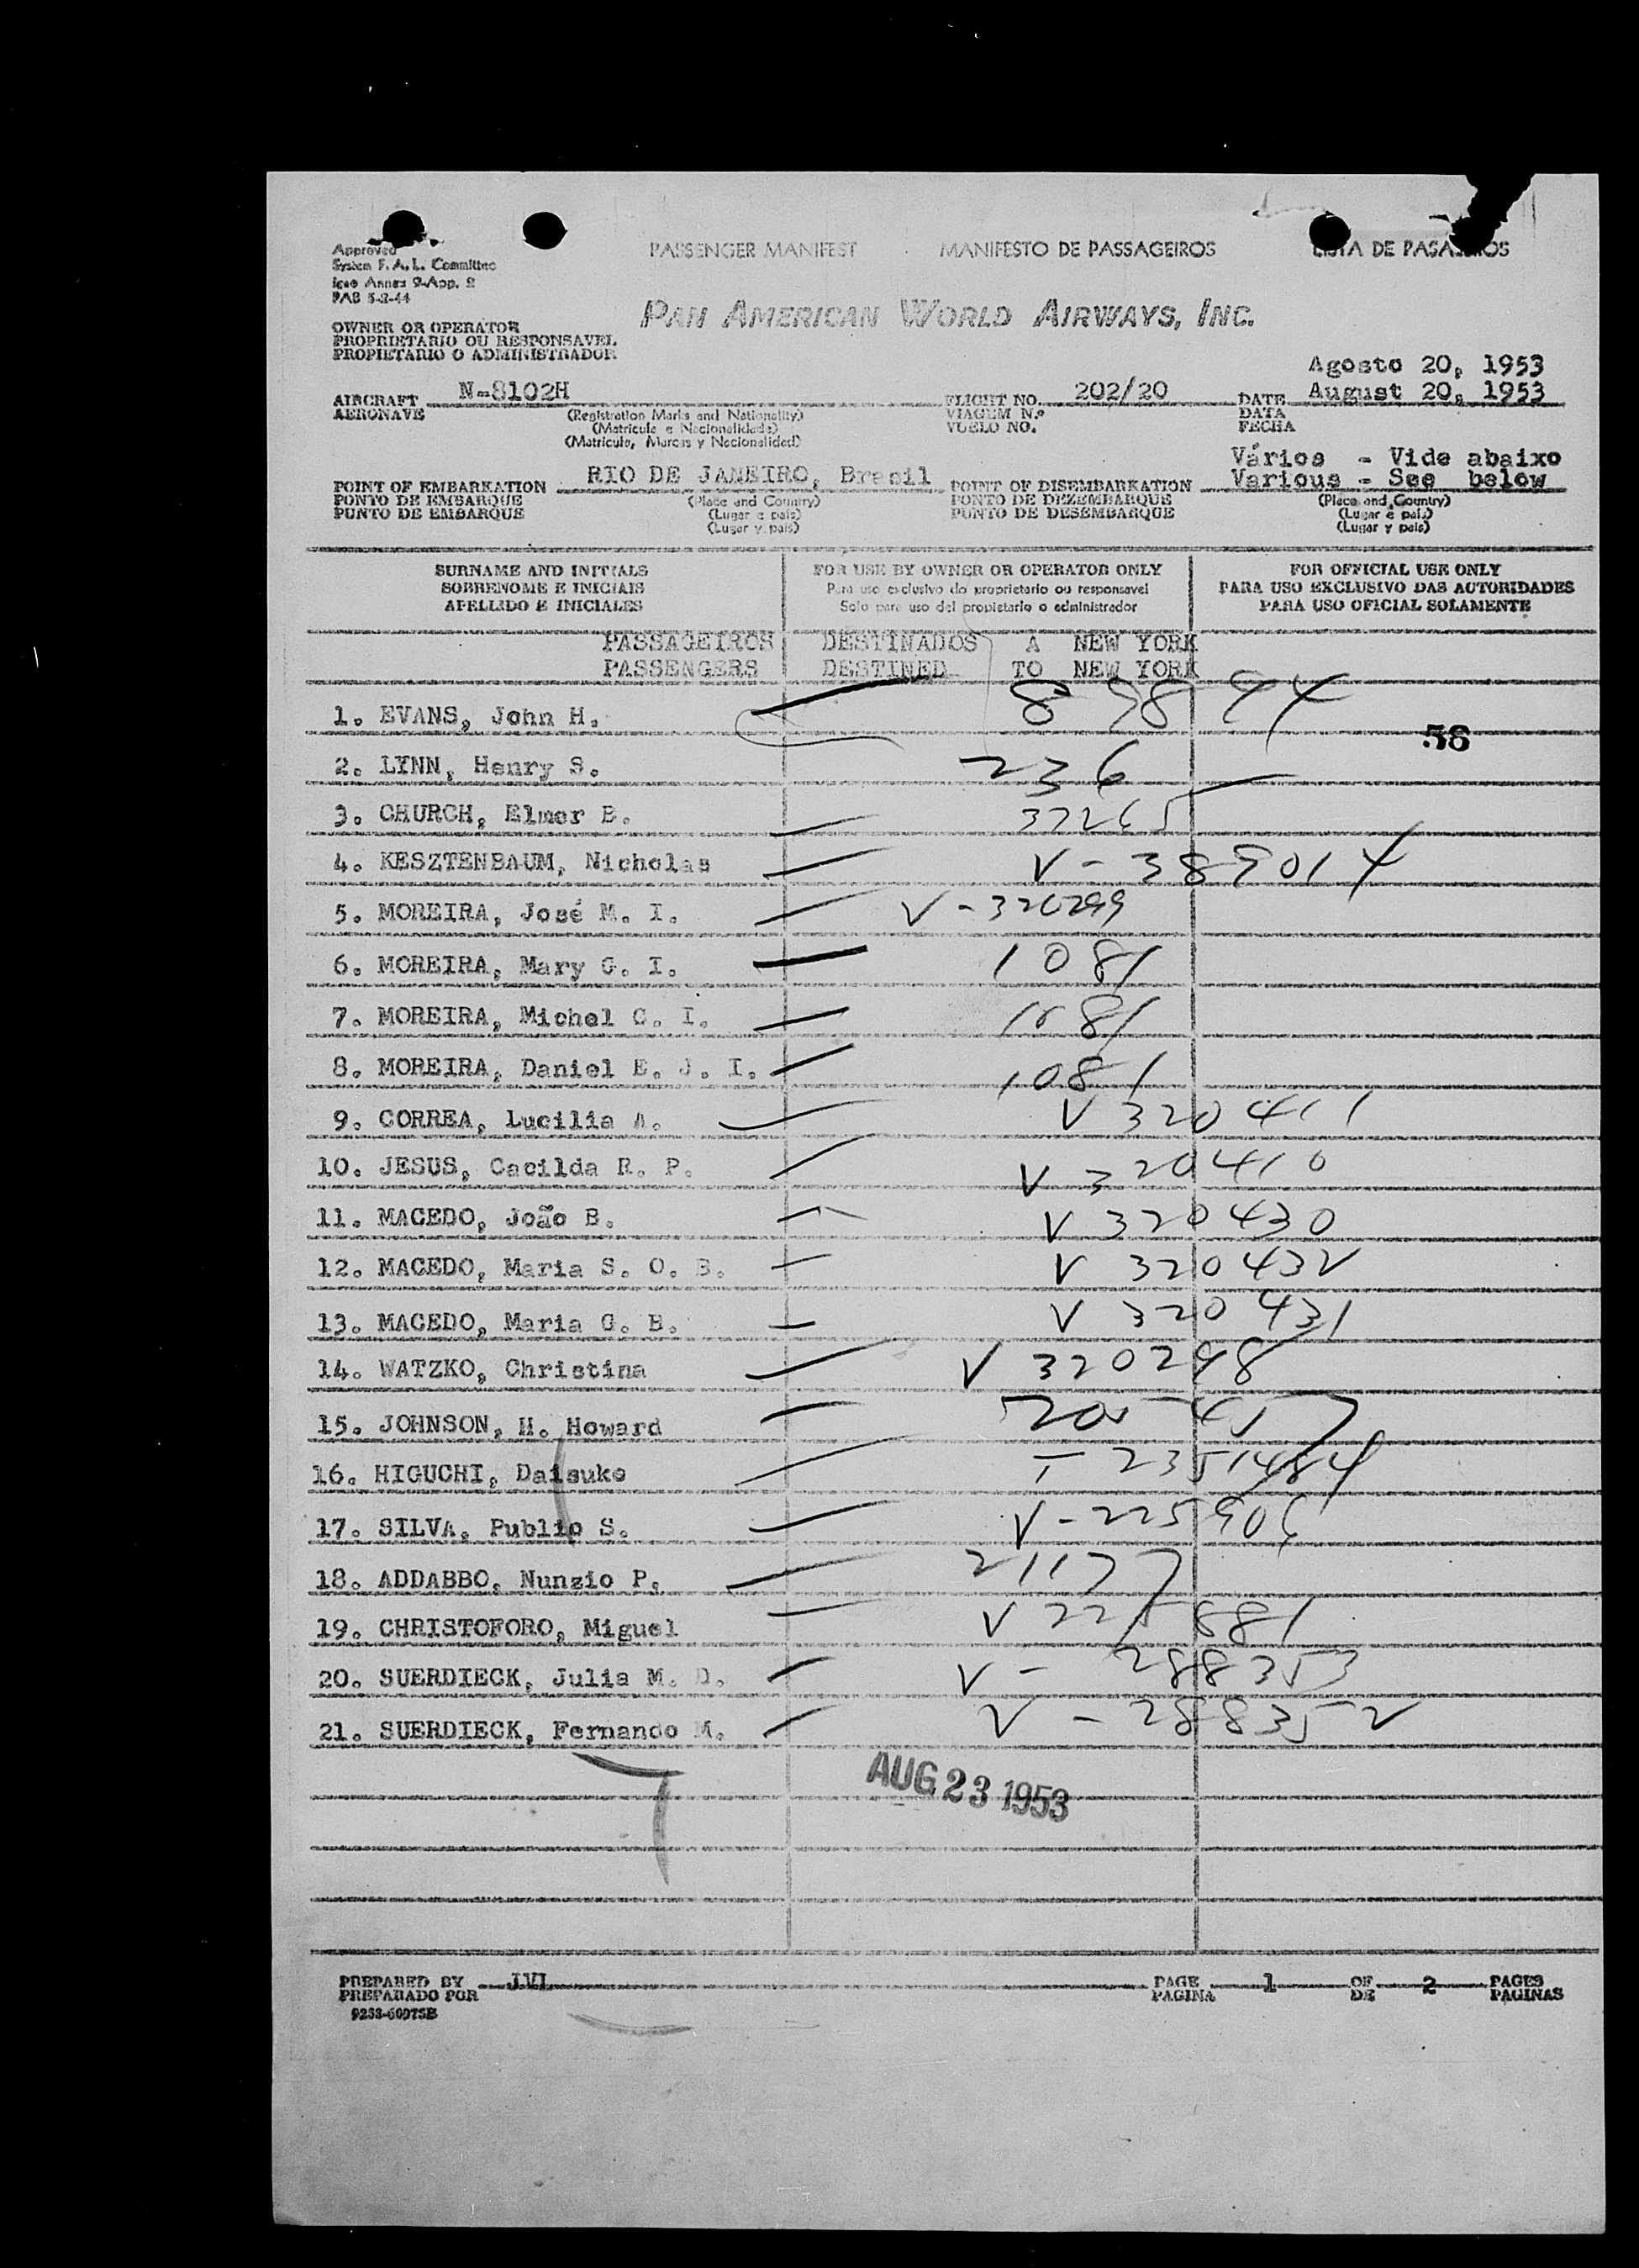 PASSENGER MANIFEST MANIFESTO DE PASSAGEIROS LISTA DE PASAJEROS
Approved
System F. A. L. Committee
Icao Annex 9-App. 2
PAB 5-2-44
PAN AMERICAN WORLD AIRWAYS, INC.
OWNER OR OPERATOR
PROPRIETARIO OU RESPONSAVEL
PROPIETARIO O ADMINISTRADOR
Agosto 20, 1953
AIRCRAFT N-8102H FLIGHT NO. 202/20 DATE August 20, 1953
AERONAVE (Registration Marks and Nationality) VIAGEM N.º DATA
(Matricula e Nacionalidade) VUELO NO. FECHA
(Matricula, Marcas y Nacionalidad)
Vários - Vide abaixo
POINT OF EMBARKATION RIO DE JANEIRO, Brasil POINT OF DISEMBARKATION Various - See below
PONTO DE EMBARQUE (Place and Country) PONTO DE DEZEMBARQUE (Place and Country)
PUNTO DE EMBARQUE (Lugar e pais) PUNTO DE DESEMBARQUE (Lugar e pais)
(Lugar y pais) (Lugar y pais)
SURNAME AND INITIALS FOR USE BY OWNER OR OPERATOR ONLY FOR OFFICIAL USE ONLY
SOBRENOME E INICIAIS Para uso exclusivo do proprietario ou responsavel PARA USO EXCLUSIVO DAS AUTORIDADES
APELLIDO E INICIALES Solo para uso del propietario o administrador PARA USO OFICIAL SOLAMENTE
PASSAGEIROS DESTINADOS A NEW YORK
PASSENGERS DESTINED TO NEW YORK
1. EVANS, John H.
56
2. LYNN, Henry S. 236
3. CHURCH, Elmer B. 32265
4. KESZTENBAUM, Nicholas V-389014
5. MOREIRA, José M. I. V-320299
6. MOREIRA, Mary G. I. 1081
7. MOREIRA, Michel C. I. 1081
8. MOREIRA, Daniel E. J. I. 1081
9. CORREA, Lucilia A. V 320411
10. JESUS, Cacilda R. P. V 320410
11. MACEDO, João B. V 320430
12. MACEDO, Maria S. O. B. V 320432
13. MACEDO, Maria G. B. V 320431
14. WATZKO, Christina V 320298
15. JOHNSON, H. Howard
16. HIGUCHI, Daisuke
17. SILVA, Publio S. V-225906
18. ADDABBO, Nunzio P. 21177
19. CHRISTOFORO, Miguel V 225881
20. SUERDIECK, Julia M. D. V - 288353
21. SUERDIECK, Fernando M. V - 288352
AUG 23 1953
PREPARED BY JVL PAGE 1 OF 2 PAGES
PREPARADO POR PAGINA DE PAGINAS
9233-60975B